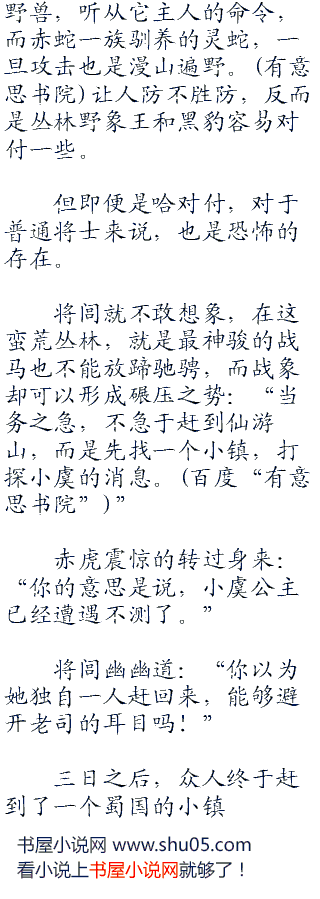 野兽，听从它主人的命令，
而赤蛇一族驯养的灵蛇，一
旦攻击也是漫山遍野。(有意
思书院)让人防不胜防，反而
是丛林野象王和黑豹容易对
付一些。
但即便是哈对付，对于
普通将士来说，也是恐怖的
存在。
将闾就不敢想象，在这
蛮荒丛林，就是最神骏的战
马也不能放蹄驰骋，而战象
却可以形成碾压之势：“当
务之急，不急于赶到仙游
山，而是先找一个小镇，打
探小虞的消息。(百度“有意
思书院”)”
赤虎震惊的转过身来：
“你的意思是说，小虞公主
已经遭遇不测了。”
将闾幽幽道：“你以为
她独自一人赶回来，能够避
开老司的耳目吗！”
三日之后，众人终于赶
到了一个蜀国的小镇
书屋小说网 www.shu05.com
看小说上书屋小说网就够了！